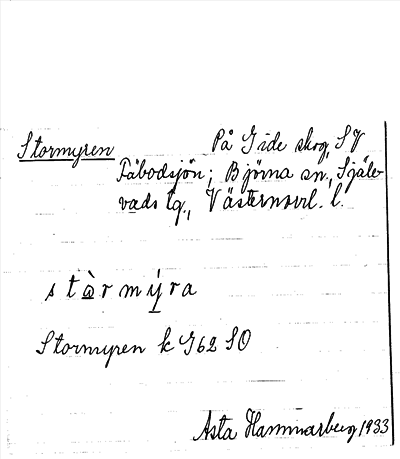 Stormyren
På Gide skog, SV
Fäbodsjön; Björna sn., Själe-
vads tg., Västernorrl. l.
stàrmýra
Stormyren k J62 SO
Asta Hammarberg 1933